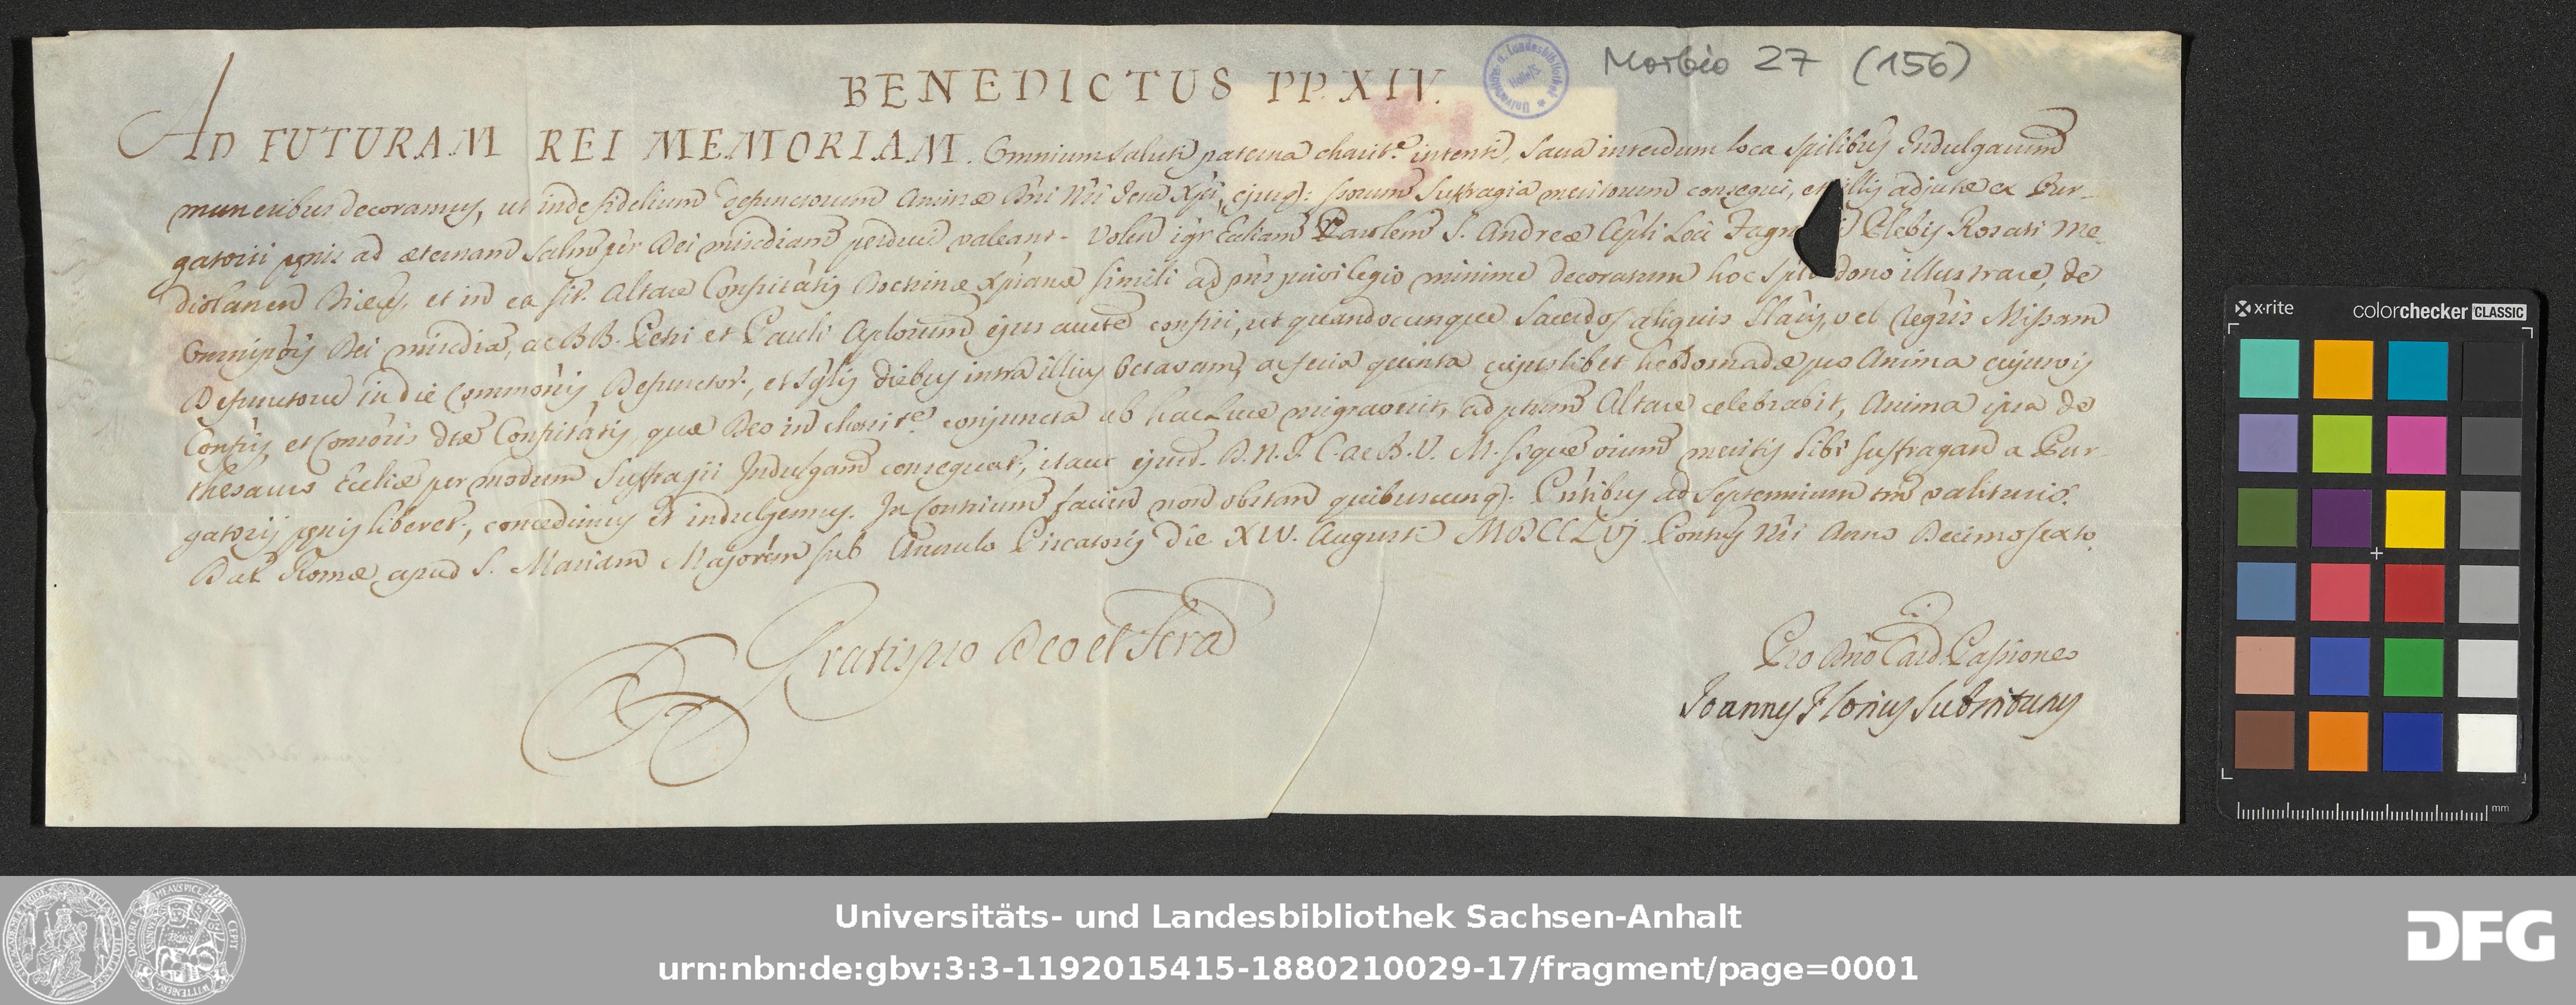 Morbio 27 (156)
Universitäts- u. Landesbibliothek Halle/S.
BENEDICTUS PP. XIV.
AD FUTURAM REI MEMORIAM. Omnium saluti paterna charit.e intenti, sacra interdum loca spilibus Indulgarum
muneribus decoramus, ut inde fidelium defunctorum Animæ Dni Nri Jesu Xpi, ejusq: Storum suffragia meritorum consequi, et illis adjutæ ex Pur-
gatorii pœnis ad æternam salutem per Dei misdiam perduci valeant. Volen igr Eccliam Paroelem S. Andreæ Apli Loci Fagn Plebis Rosati Me-
diolanen Diœcs, et in ea sit. Altare Confritatis Doctrinæ Xpianæ simili ad pns privilegio minime decoratum hoc spli dono illustrare, de
Omnipotis Dei misdia, ac BB. Petri et Pauli Aplorum ejus auctte confisi, ut quandocunque Sacerdos aliquis Slaris, vel Regris Missam
Defunctorum in die Commonis Defunctor., et sglis diebus intra illius Octavam, ac feria quinta cujuslibet hebdomadæ pro Anima cujusvis
Confris, et Consoris dtæ Confritatis, quæ Deo in charit.e conjuncta ab hac luce migraverit, ad ptum Altare celebrabit, Anima ipsa de
thesauro Eccliæ per modum suffragii Indulgam consequat, itaut ejusd. D.N.J.C. ac B.V.M. Stque oium meritis sibi suffragan a Pur-
gatorij pœnis liberet., concedimus et indulgemus. In contrium facien non obstan quibuscunq:. Pntibus ad Septennium tm valituris.
Dat Romæ apud S. Mariam Majorem sub Annulo Piscatoris die XIV. Augusti MDCCLVj. Pontus Nri Anno Decimosexto
Gratis pro Deo et Scra
Pro Dno Card. Passioneo
Joannes Florius Substitutus
x-rite
colorchecker CLASSIC
mm
Universitäts- und Landesbibliothek Sachsen-Anhalt
urn:nbn:de:gbv:3:3-1192015415-1880210029-17/fragment/page=0001
DFG